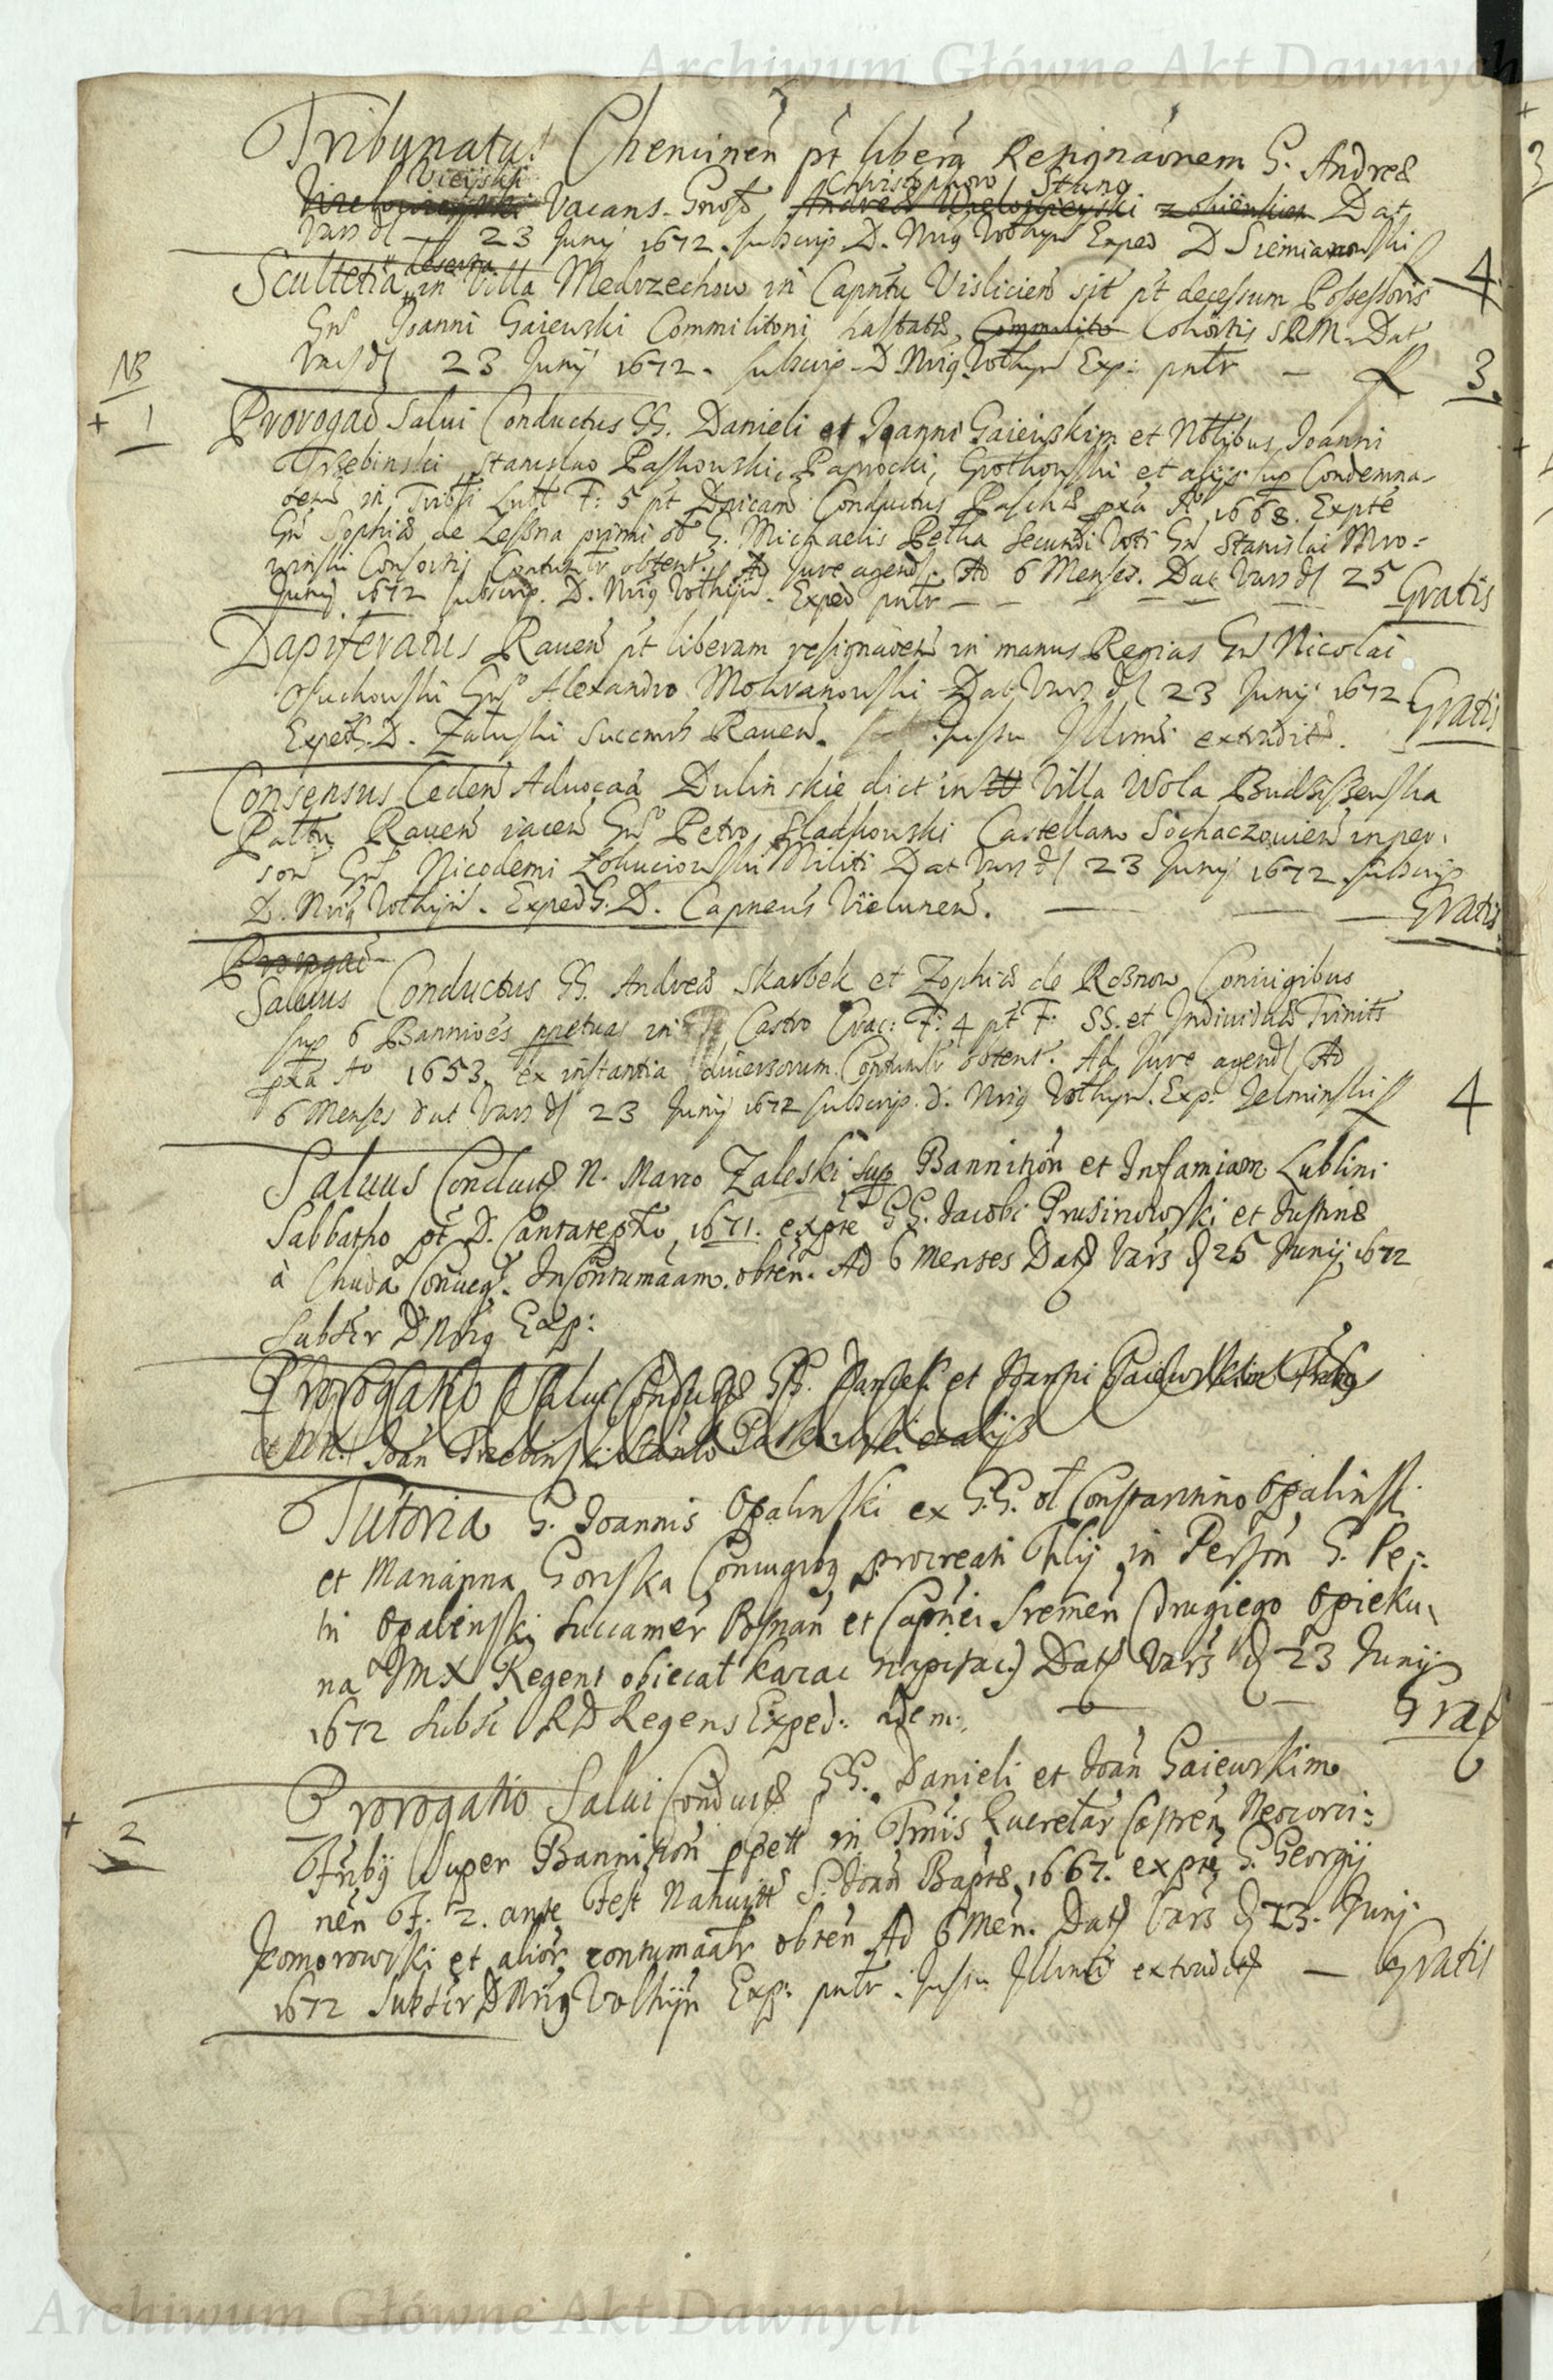 Archiwum Główne Akt Dawnych
Tribunatus Chencinen pt liberã Resignaõnem G. Andreæ
Vieyski Christophoro Stano
Vacans. Gnoso Andreæ Dat
Vars dl 23 Junij 1672. subscrip D. Nrig Vothyn Exped D Siemianowski 4.
deserta
Scultetia in Villa Medrzechow in Capntu Vislicien sit pt decessum Possessoris
Gnso Joanni Gaiewski Commilitoni hastatæ, Commilito Cohortis SRM. Dat
NB
Vars dl 23 Junij 1672. subscrip. D. Nrig Vothyn Exp: pntr — 3.
+ 1
Prorogaõ Salui Conductus GG. Danieli et Joanni Gaiewskim et Ntlibus Joanni
Trzebinski, Stanislao Paskowski, Paprocki, Grothowski et alijs sup Condemna-
oem in Tribli Lubl F: 5 pt Dnicam Conductus Paschæ pxa A° 1668. Expte
Gn Sophiæ de Lessna primi ol G. Michaelis Petha secundi Voti Gn Stanislai Mro=
winski Consortis Contumtr obtent. Ad Jure agend. Ad 6 Menses. Dat Vars dl 25
Junij 1672 subscrip. D. Nrig Vothyn. Exped pntr — — Gratis
Dapiferatus Raven pt liberam resignaõem in manus Regias Gn Nicolai
Suchowski Gnso Alexandro Mokranowski Dat Vars dl 23 Junij 1672 Gratis
Exped. D. Zaluski Succmrs Raven. Jussu Illmi extradit.
Consensus Ceden Aduocaã Dulinskie dict in Villa Wola
Palttu Raven iacen Gnso Petro Sladkowski Castellano Sochaczovien in per=
son Gnsi Nicodemi Militi Dat Vars dl 23 Junij 1672 subscrip
D. Nrig Vothyn. Exped G. D. Capneus Vielunen. — — Gratis
Prorogaõ
Saluus Conductus GG. Andreæ Skarbek et Zophiæ de Rosnow Coniugibus
sup 6 Bannioes ppetuas in Castro Crac: F: 4 pt F: SS. et Individuæ Trinits
pxa A° 1653 ex instantia diuersorum Contumtr obtent. Ad Jure agend Ad
6 Menses dat Vars dl 23 Junij 1672 subscrip. d. Nrig Vothyn. Exp: Jelminski 4
Saluus Conducts N. Marco Zaleski sup Bannition et Infamiam Lublini
Sabbatho pt D. Cantate pxo 1671. expte GG. Jacobi Prusinowski et Justinæ
à Chuda Coniug. In Contumaciam obten. Ad 6 Menses Dats Vars d 25 Junij 1672
Subscr D Nrig Exp:
Prorogatio Salui Conductus GG. Danieli et Joanni Gaiewskim
Joan Trzebinski Stanislo Paskowski et alijs
Tutoria G. Joannis Opalinski ex GG. ol Constantino Opalinski
et Marianna Gorska Coniugibg procreati filij in Person G. Pe=
tri Opalinski Succamer Posnan et Capnei Sremen (Drugiego Opieku=
na JMX Regens obiecał kazac napisac) Dats Vars d 23 Junij
1672 Subsc RD Regens Exped: idem. — — Gras
+ 2
Prorogatio Salui Conducts GG. Danieli et Joan Gaiewskim
Frıby Super Bannition ppett in Trmis Quereları Castren Neocorci=
nen F. 2. ante Fest Natiuitt S. Joan Bapts 1667. expte G. Georgij
Komorowski et alior contumaatr obten Ad 6 Men. Dats Vars d 23. Junj
1672 Subscr D Nrig Volhyn Exp: pntr. Jussu Illmi extradits — Gratis
Archiwum Główne Akt Dawnych